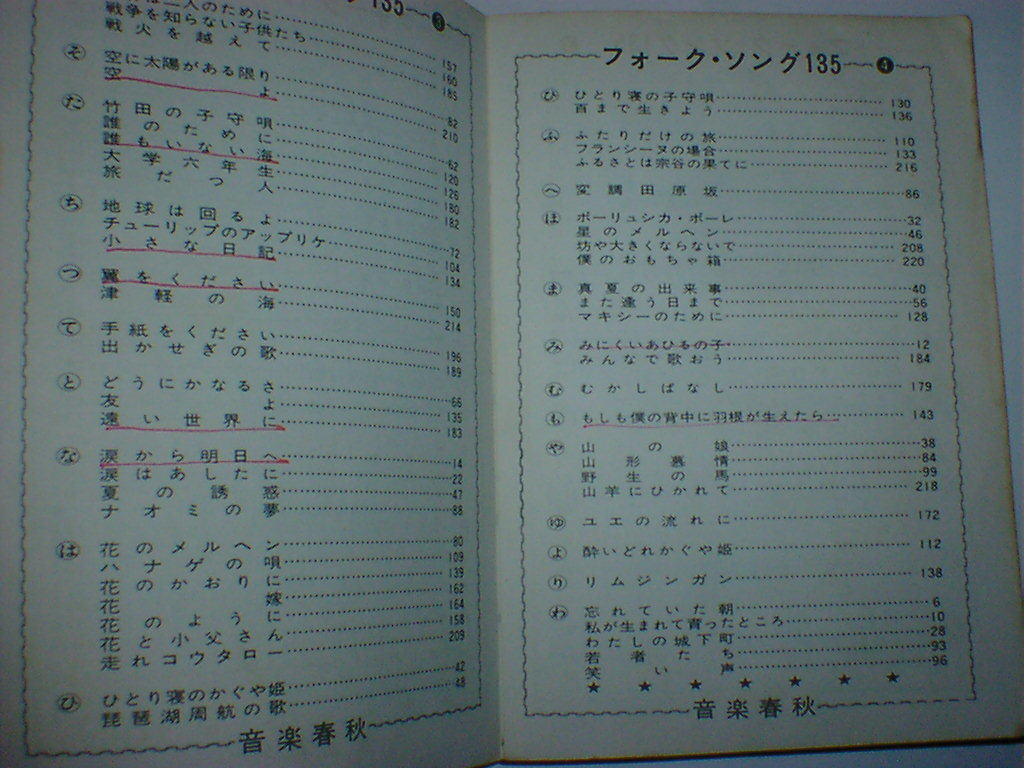 135 ❸
二人のために 157
戦争を知らない子供たち 160
戦火を越えて 185
そ 空に太陽がある限り 82
空よ 210
た 竹田の子守唄 62
誰のために 120
誰もいない海 126
大学六年生 180
旅だつ人 182
ち 地球は回るよ 72
チューリップのアップリケ 104
小さな日記 134
つ 翼をください 150
津軽の海 214
て 手紙をください 196
出かせぎの歌 189
と どうにかなるさ 66
友よ 135
遠い世界に 183
な 涙から明日へ 14
涙はあしたに 22
夏の誘惑 47
ナオミの夢 88
は 花のメルヘン 80
ハナゲの唄 109
花のかおりに 139
花嫁 162
花のように 164
花と小父さん 158
走れコウタロー 209
ひ ひとり寝のかぐや姫 42
琵琶湖周航の歌 48
音楽春秋
フォーク・ソング135 ❹
ひ ひとり寝の子守唄 130
百まで生きよう 136
ふ ふたりだけの旅 110
フランシーヌの場合 133
ふるさとは宗谷の果てに 216
へ 変調田原坂 86
ほ ポーリュシカ・ポーレ 32
星のメルヘン 46
坊や大きくならないで 208
僕のおもちゃ箱 220
ま 真夏の出来事 40
また逢う日まで 56
マキシーのために 128
み みにくいあひるの子 12
みんなで歌おう 184
む むかしばなし 179
も もしも僕の背中に羽根が生えたら 143
や 山の娘 38
山形慕情 84
野生の馬 99
山羊にひかれて 218
ゆ ユエの流れに 172
よ 酔いどれかぐや姫 112
り リムジンガン 138
わ 忘れていた朝 6
私が生まれて育ったところ 10
わたしの城下町 28
若者たち 93
笑い声 96
★ ★ ★ ★ ★ ★ ★
音楽春秋